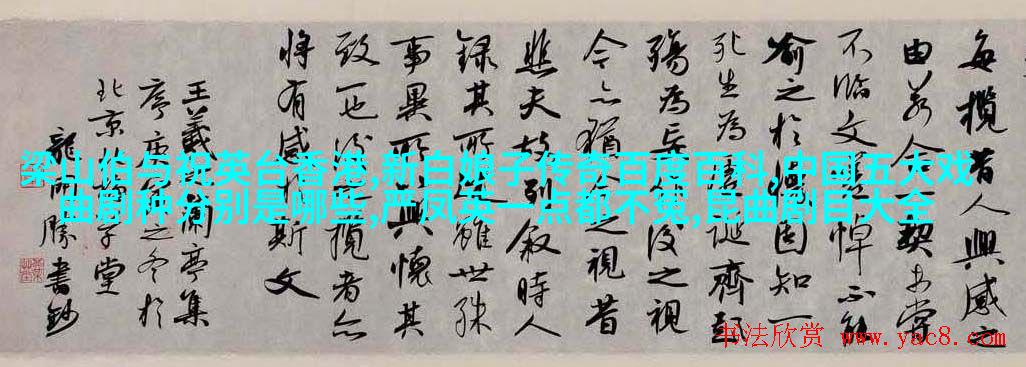 梁山伯与祝英台香港,新白娘子传奇百度百科,中国五大戏
曲剧种分别是哪些,严凤英一点都不冤,昆曲剧目大全
每攬昔人興感之
由若合契未嘗
不臨文嗟悼不能
喻之於懷固知一
死生為虛誕齊彭
殤為妄作後之視
今亦猶今之視昔
悲夫故列敘時人
錄其所述雖世殊
事異所以興懷其
致一也後之攬者亦
將有感於斯文
王羲之蘭亭集
序之冬於
北京學堂
龍開勝書鈔
书法欣赏 www.yac8.com